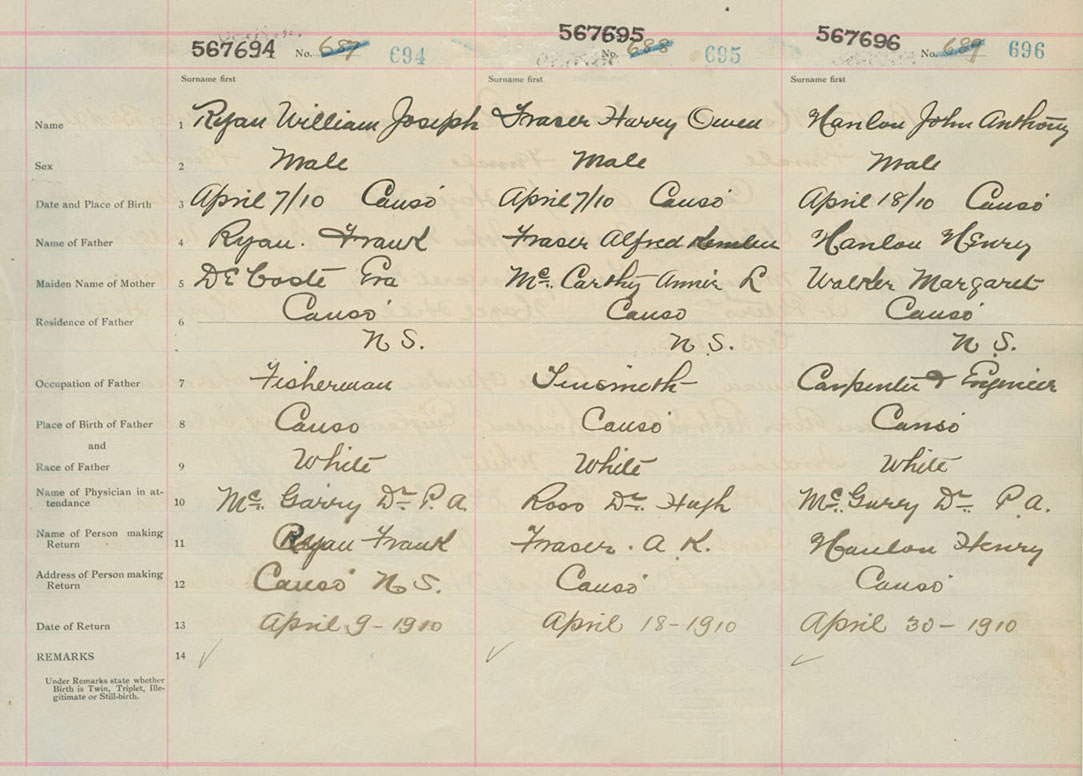 567694 No. 687 694
567695 No. 688 695
567696 No. 689 696
Surname first Surname first Surname first
Name 1 Ryan William Joseph Fraser Harry Owen Hanlon John Anthony
Sex 2 Male Male Male
Date and Place of Birth 3 April 7/10 Canso April 7/10 Canso April 18/10 Canso
Name of Father 4 Ryan. Frank Fraser Alfred Hanlon Henry
Maiden Name of Mother 5 DE Coste Eva Mc. Carthy Annie L Walker Margaret
Residence of Father 6 Canso Canso Canso
N S. N. S. N. S.
Occupation of Father 7 Fisherman Tinsmith Carpenter & Engineer
Place of Birth of Father 8 Canso Canso Canso
and
Race of Father 9 White White White
Name of Physician in at-
tendance 10 Mc. Garry Dr. P. A. Ross Dr. Hugh Mc. Garry Dr. P. A.
Name of Person making
Return 11 Ryan Frank Fraser. A. K. Hanlon Henry
Address of Person making
Return 12 Canso N. S. Canso Canso
Date of Return 13 April 9-1910 April 18-1910 April 30-1910
REMARKS 14
Under Remarks state whether
Birth is Twin, Triplet, Ille-
gitimate or Still-birth.